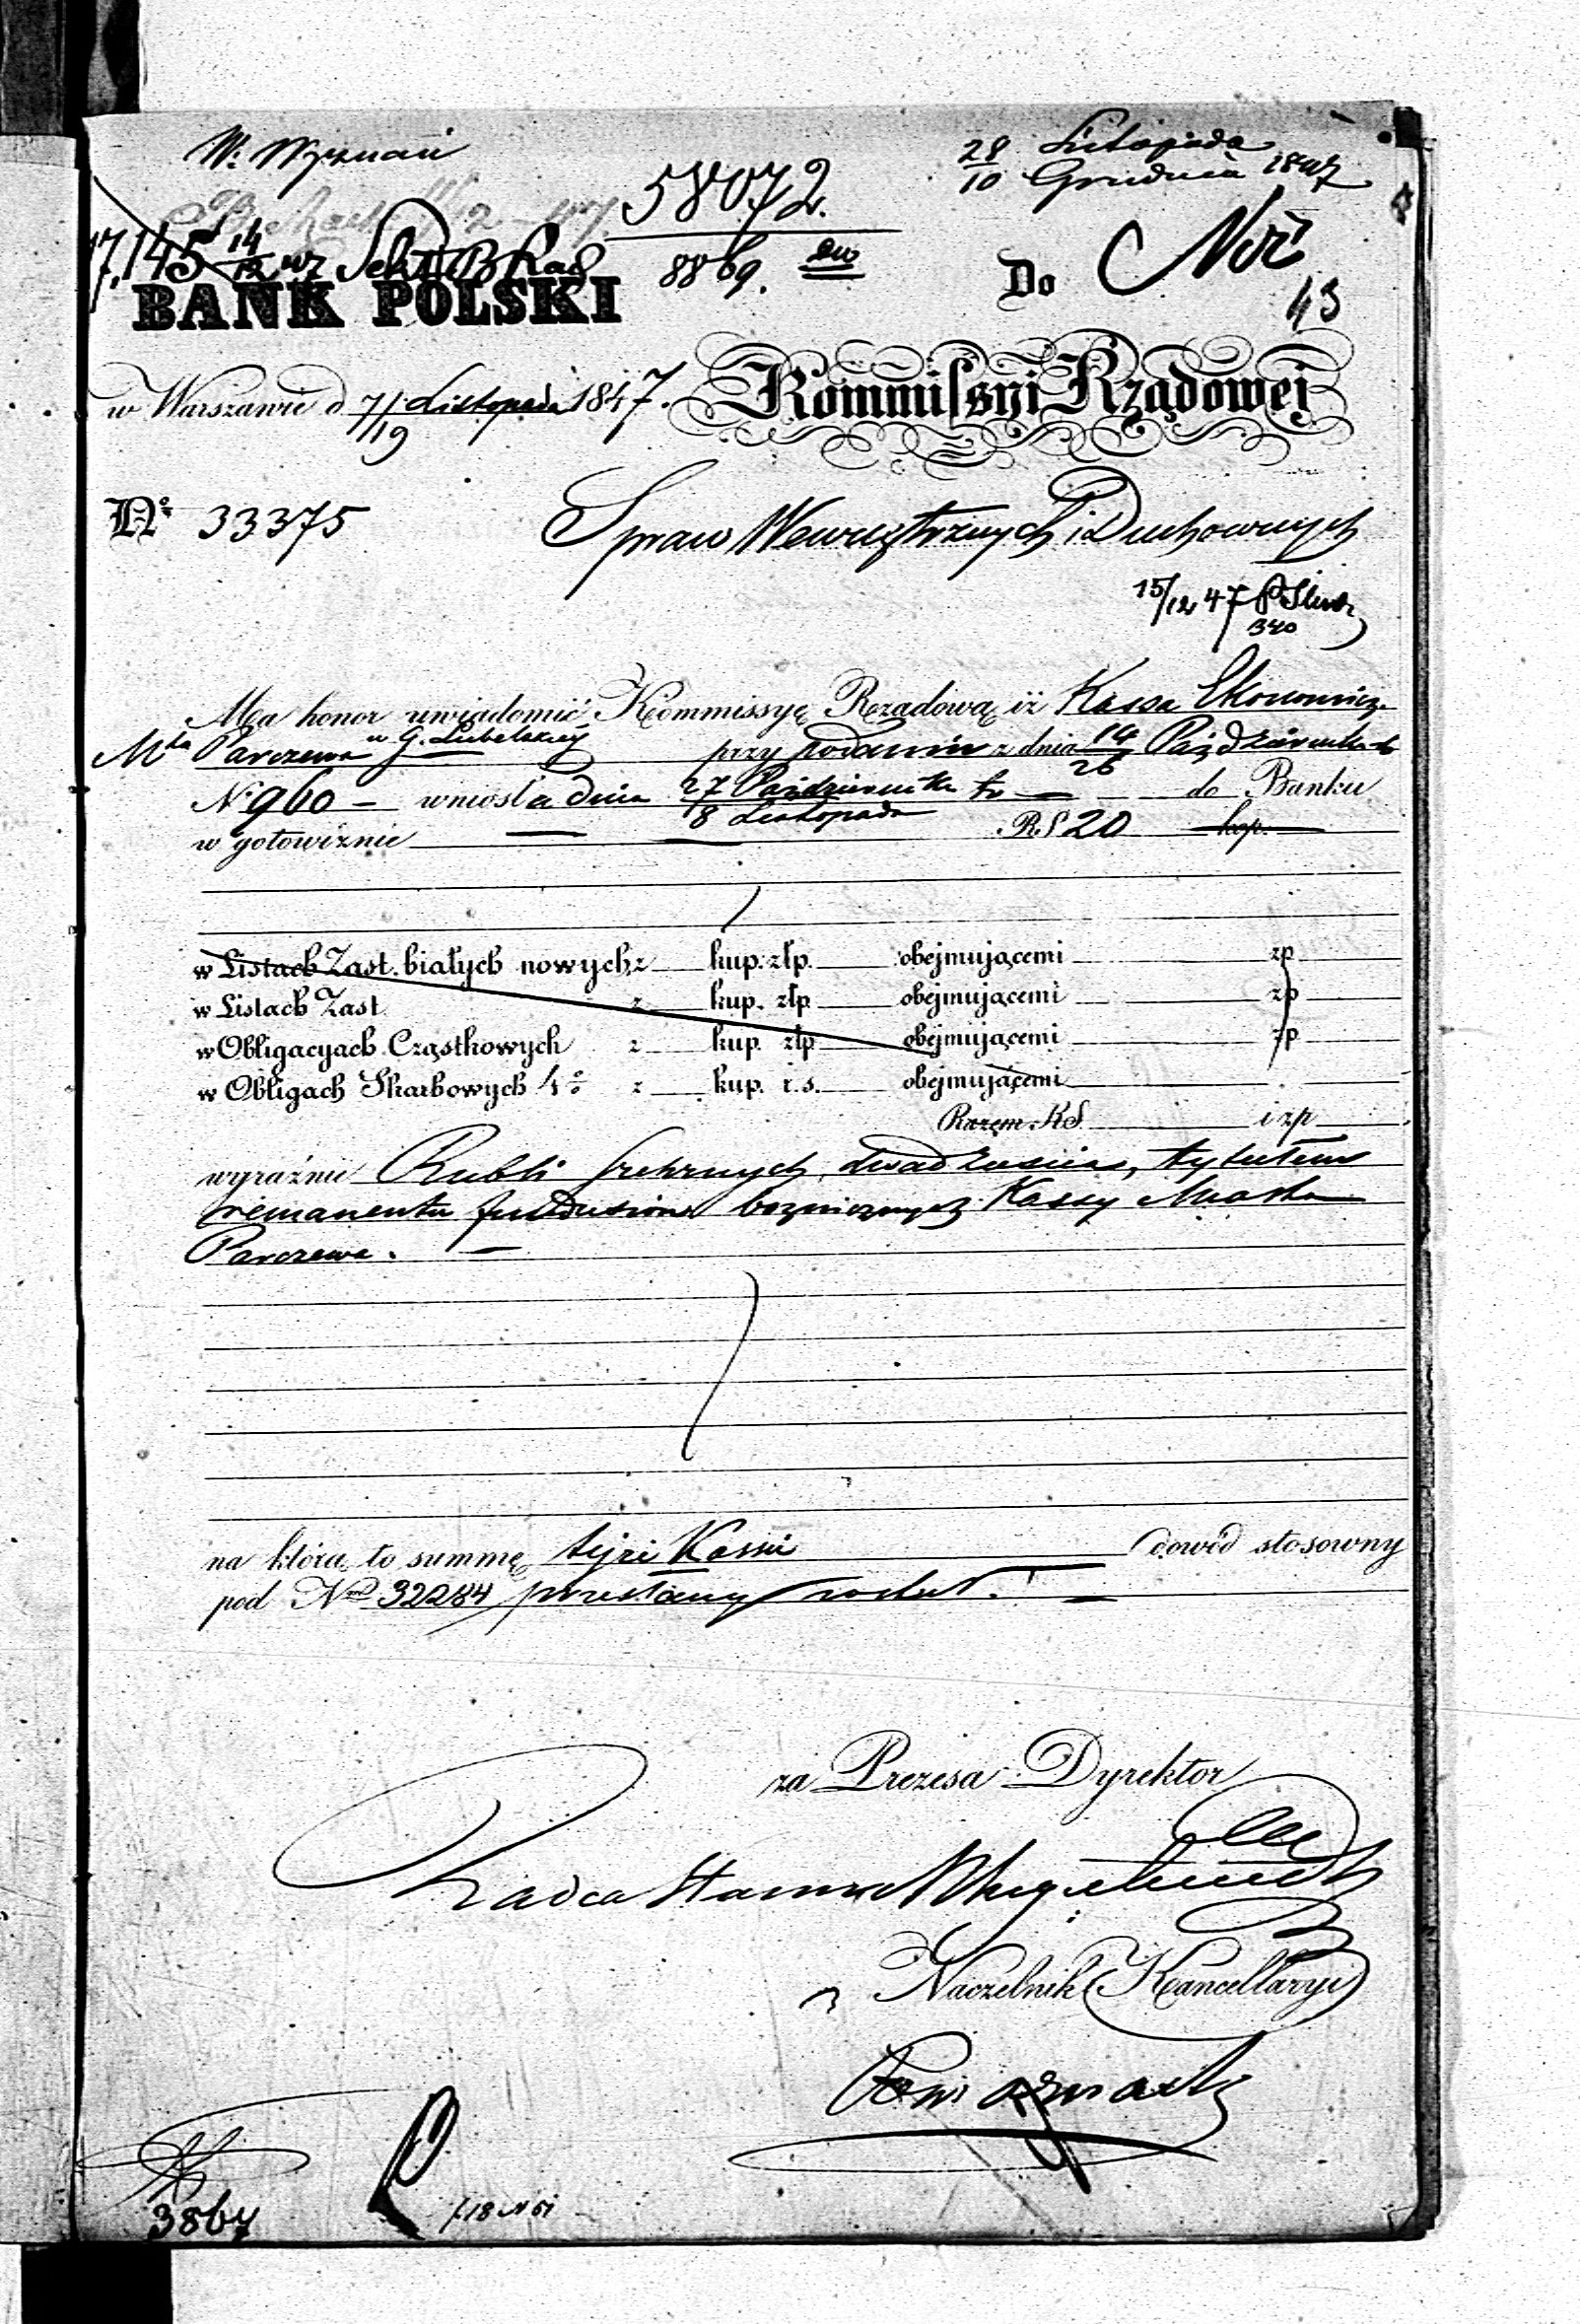 W. Wyznań
28/10 Listopada Grudnia 1847
58072
8869.
17,145 14/12 47 Sekt
BANK POLSKI
Do
43
w Warszawie d 7/19 Listopada 1847.
Kommissyi Rządowej
No 33375
Spraw Wewnętrznych i Duchownych
15/12 47
340
Ma honor uwiadomić Kommissyę Rządową iż Kassa Ekonomicz.
Mta Parczewa w G. Lubelskiey przy podaniu z dnia 14/26 Października
No 960 — wniosła dnia 27 Października / 8 Listopada tr — do Banku
w gotowiznie — RS 20 kop.
w Listach Zast. białych nowych z kup. złp. obejmującemi zp
w Listach Zast. z kup. złp. obejmującemi zp
w Obligacyach Cząstkowych z kup. złp. obejmującemi zp
w Obligach Skarbowych 4% z kup. r.s. obejmującemi
Razem RS. i zp
wyraźnie Rubli srebrnych dwadzieścia, tytułem
remanentu funduszów bożniczych z Kassy Miasta
Parczewa. —
na którą to summę tejże Kassie dowód stosowny
pod Nrem 32284 przesłany został. —
za Prezesa Dyrektor
Radca Stanu
Naczelnik Kancellaryi
3867